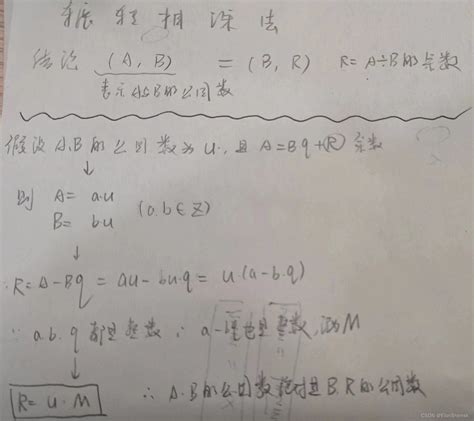 辗转相除法
结论 (A, B) = (B, R) R= A÷B的余数
表示A&B的公因数
假设 A.B的公因数为u., 且 A=Bq+(R) 余数
↓
则 A= a.u
B= bu (a.b∈Z)
↓
∴R=A-Bq = au-bu.q= u.(a-b.q)
∵ a.b.q 都是整数 ∴ a-也是整数,为M
↓
R= u.M ∴ A.B的公因数绝对是B.R的公因数